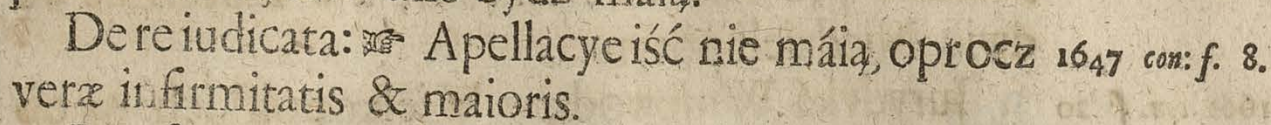 De re iudicata: ☞ Apellacye iść nie máią, oprocz 1647 con: f. 8.
veræ infirmitatis & maioris.